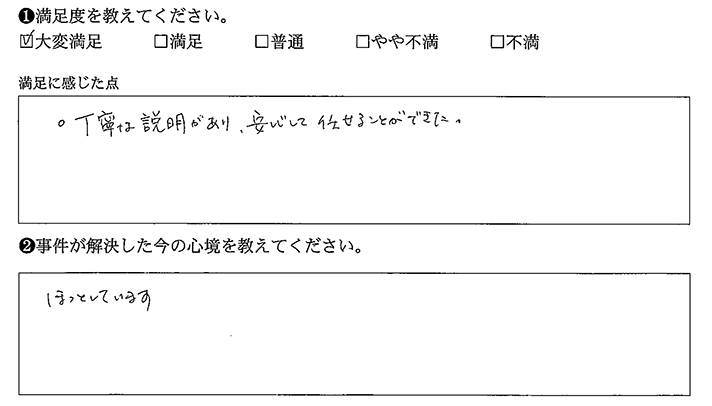 ❶満足度を教えてください。
☑大変満足 □満足 □普通 □やや不満 □不満
満足に感じた点
○丁寧な説明があり、安心して任せることができた。
❷事件が解決した今の心境を教えてください。
ほっとしています